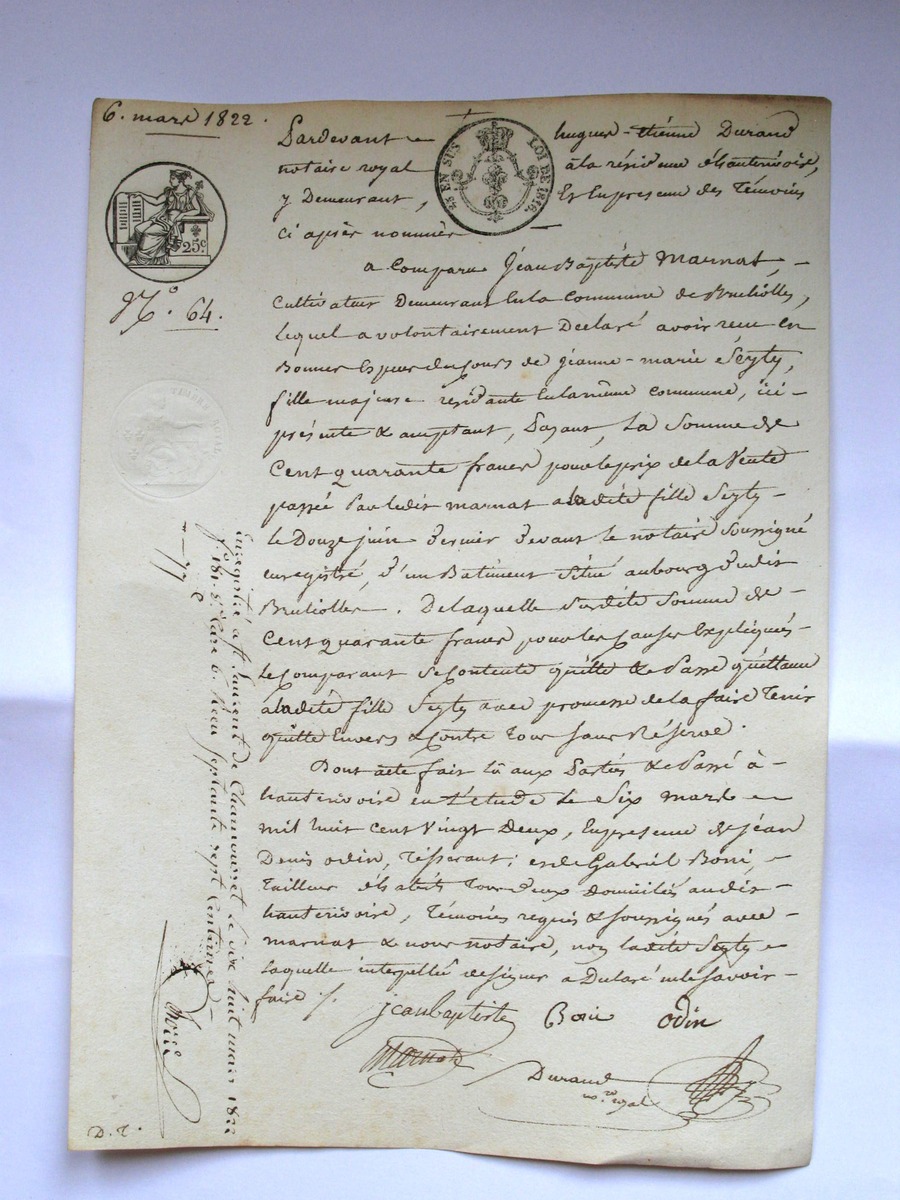 6. mars 1822.
Pardevant hugues-étienne Durand
notaire royal à la résidence d'hauterivoire,
y Demeurant, Et En presence des Témoins
ci après nommés
25 EN SUS LOI DE 1816.
25c
N.º 64.
TIMBRE ROYAL
a Comparu Jean Baptiste Marnat,
Cultivateur Demeurant En la Commune de Brulliolles,
lequel a volontairement Déclaré avoir reçu en
Bonnes Espèces du Cours de jeanne-marie Seyty,
fille majeure résidante En la même commune, ici
présente & acceptant, Payant, La Somme de
Cent quarante francs pour le prix de la Vente
passée Par ledit marnat a ladite fille Seyty
le Douze juin Dernier Devant le notaire Soussigné
enregistré, D'un Batiment Situé au bourg Dudit
Brulliolles. De laquelle Susdite Somme de
Cent quarante francs pour les Causes Expliquées
le Comparant Se Contente quitte & Passe quittance
à ladite fille Seyty avec promesse de la faire Tenir
quitte Envers & Contre Tous Sans Réserve.
Dont acte fait lû aux Parties & Passé à
hauterivoire en l'étude Le Six mars
mil huit Cent Vingt Deux, En presence de Jean
Denis odin, Tisserant, et de Gabriel Boni,
Tailleur d'habits Tous Deux Domiciliés audit
hauterivoire, Témoins requis & Soussignés avec
marnat & nous notaire, non ladite Seyty
Laquelle interpellée de signer a Declaré ne le Savoir
faire /.
jean baptiste Boni odin
Marnat
Durand
no.re royal
Enregistré à St Laurent de Chamousset le six huit mars 1822
f. 181. Case 6. Reçu septante sept Centimes
D. T.